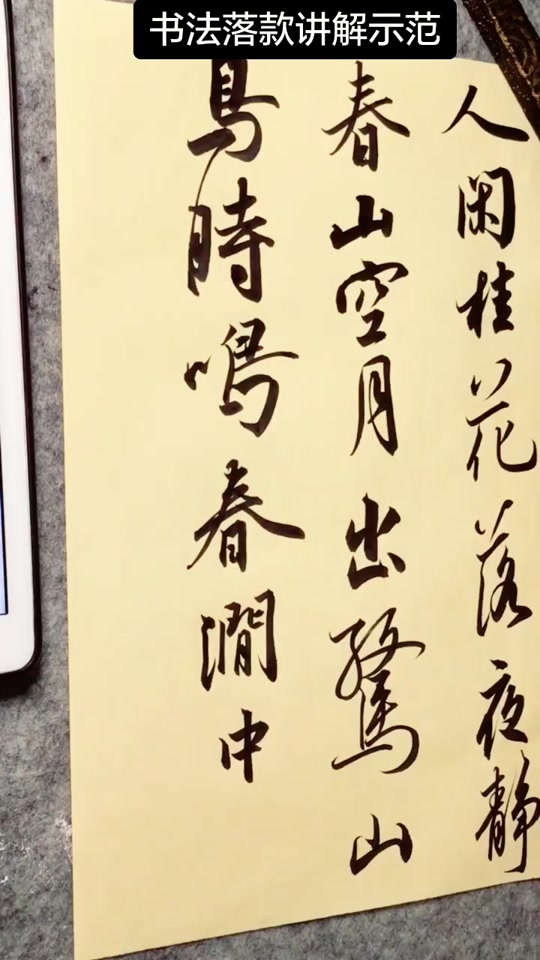 书法落款讲解示范
人闲桂花落夜静
春山空月出驚山
鳥時鳴春澗中